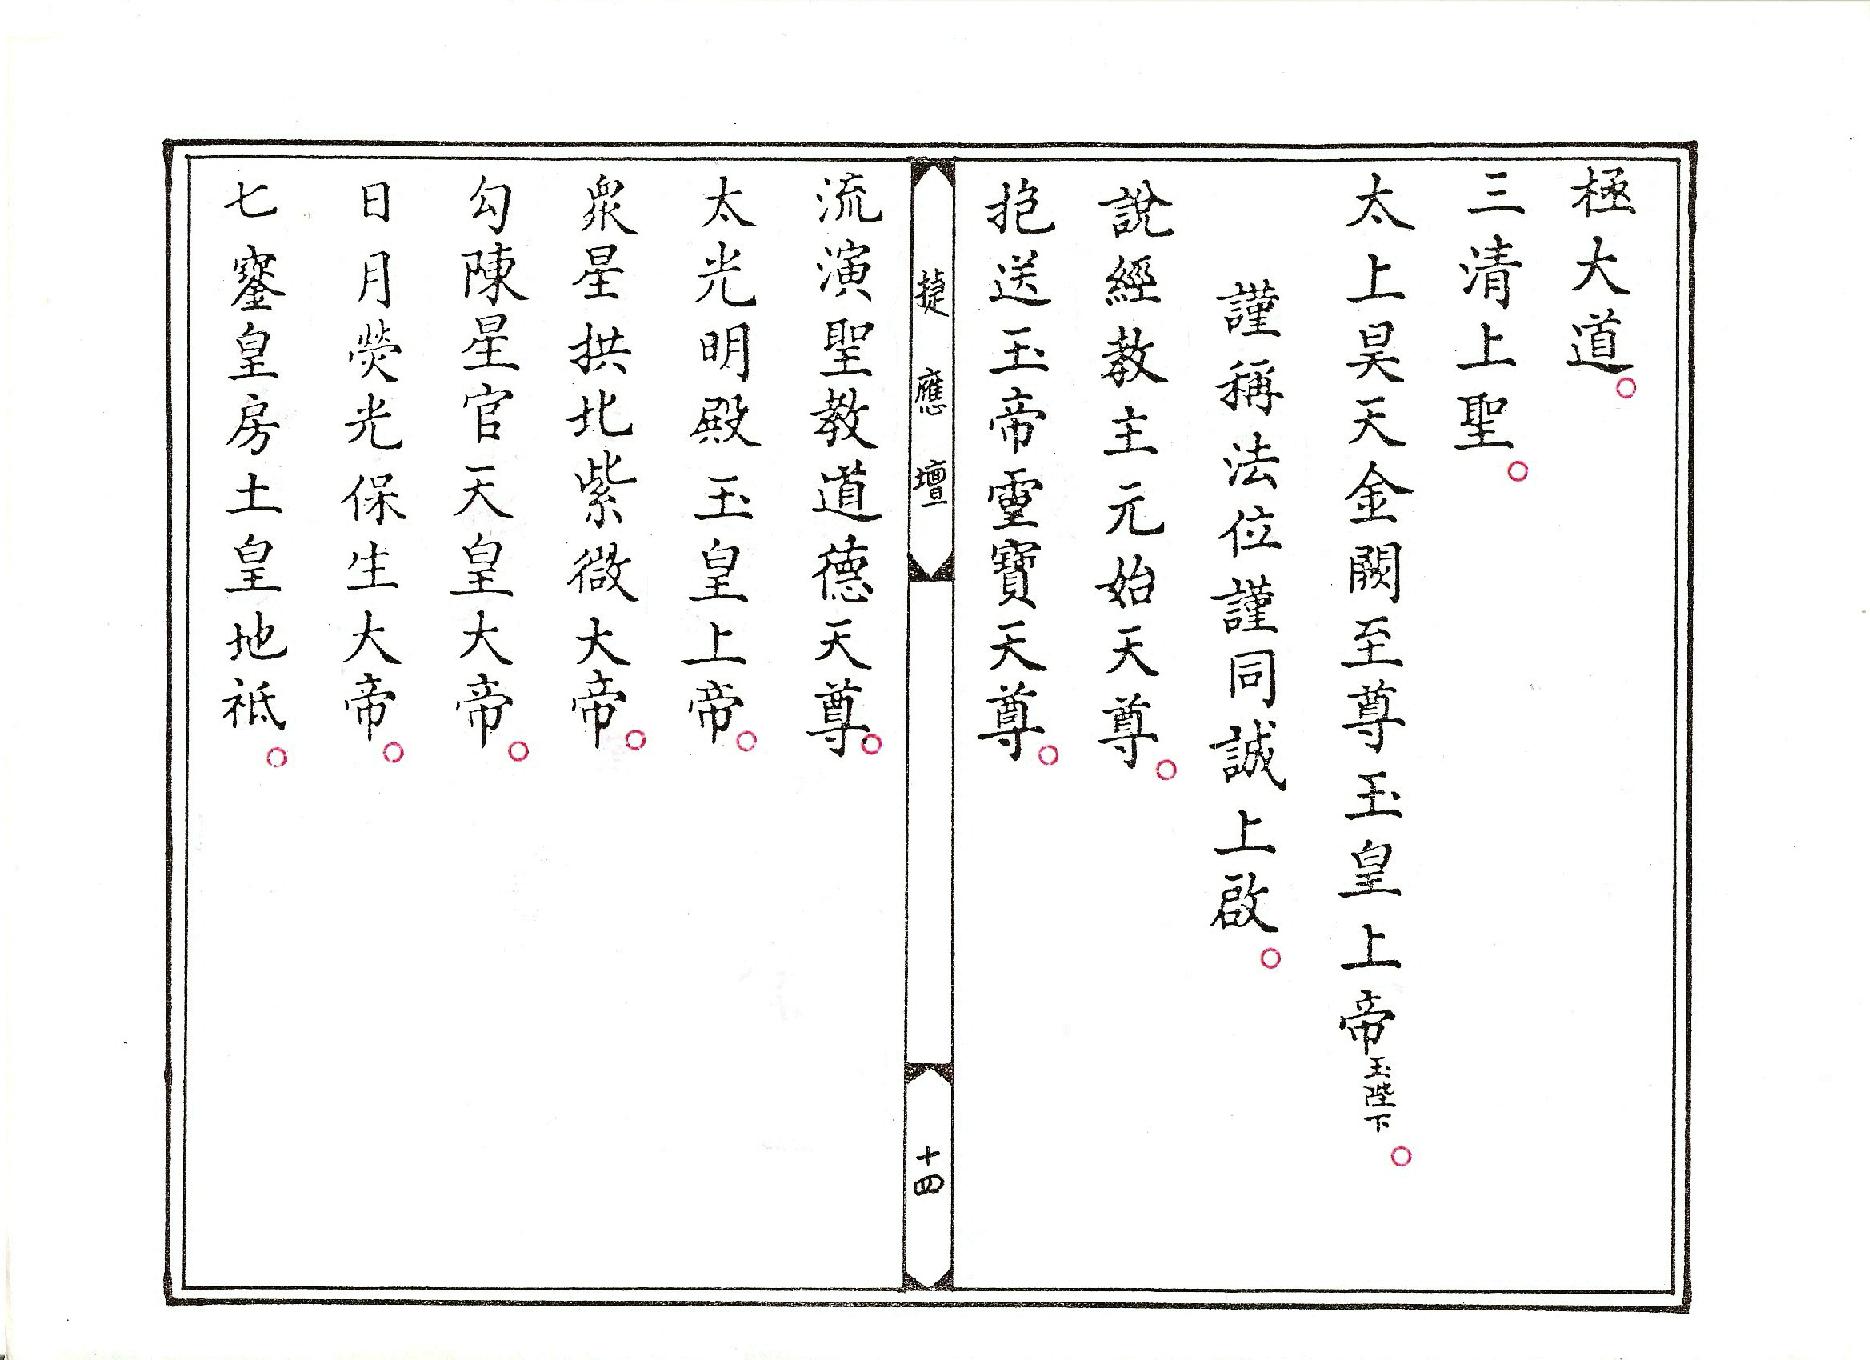 極大道。
三清上聖。
太上昊天金闕至尊玉皇上帝玉陛下。
謹稱法位謹同誠上啟。
說經教主元始天尊。
抱送玉帝靈寶天尊。
捷應壇
十四
流演聖教道德天尊。
太光明殿玉皇上帝。
眾星拱北紫微大帝。
勾陳星官天皇大帝。
日月熒光保生大帝。
七寶皇房土皇地祇。